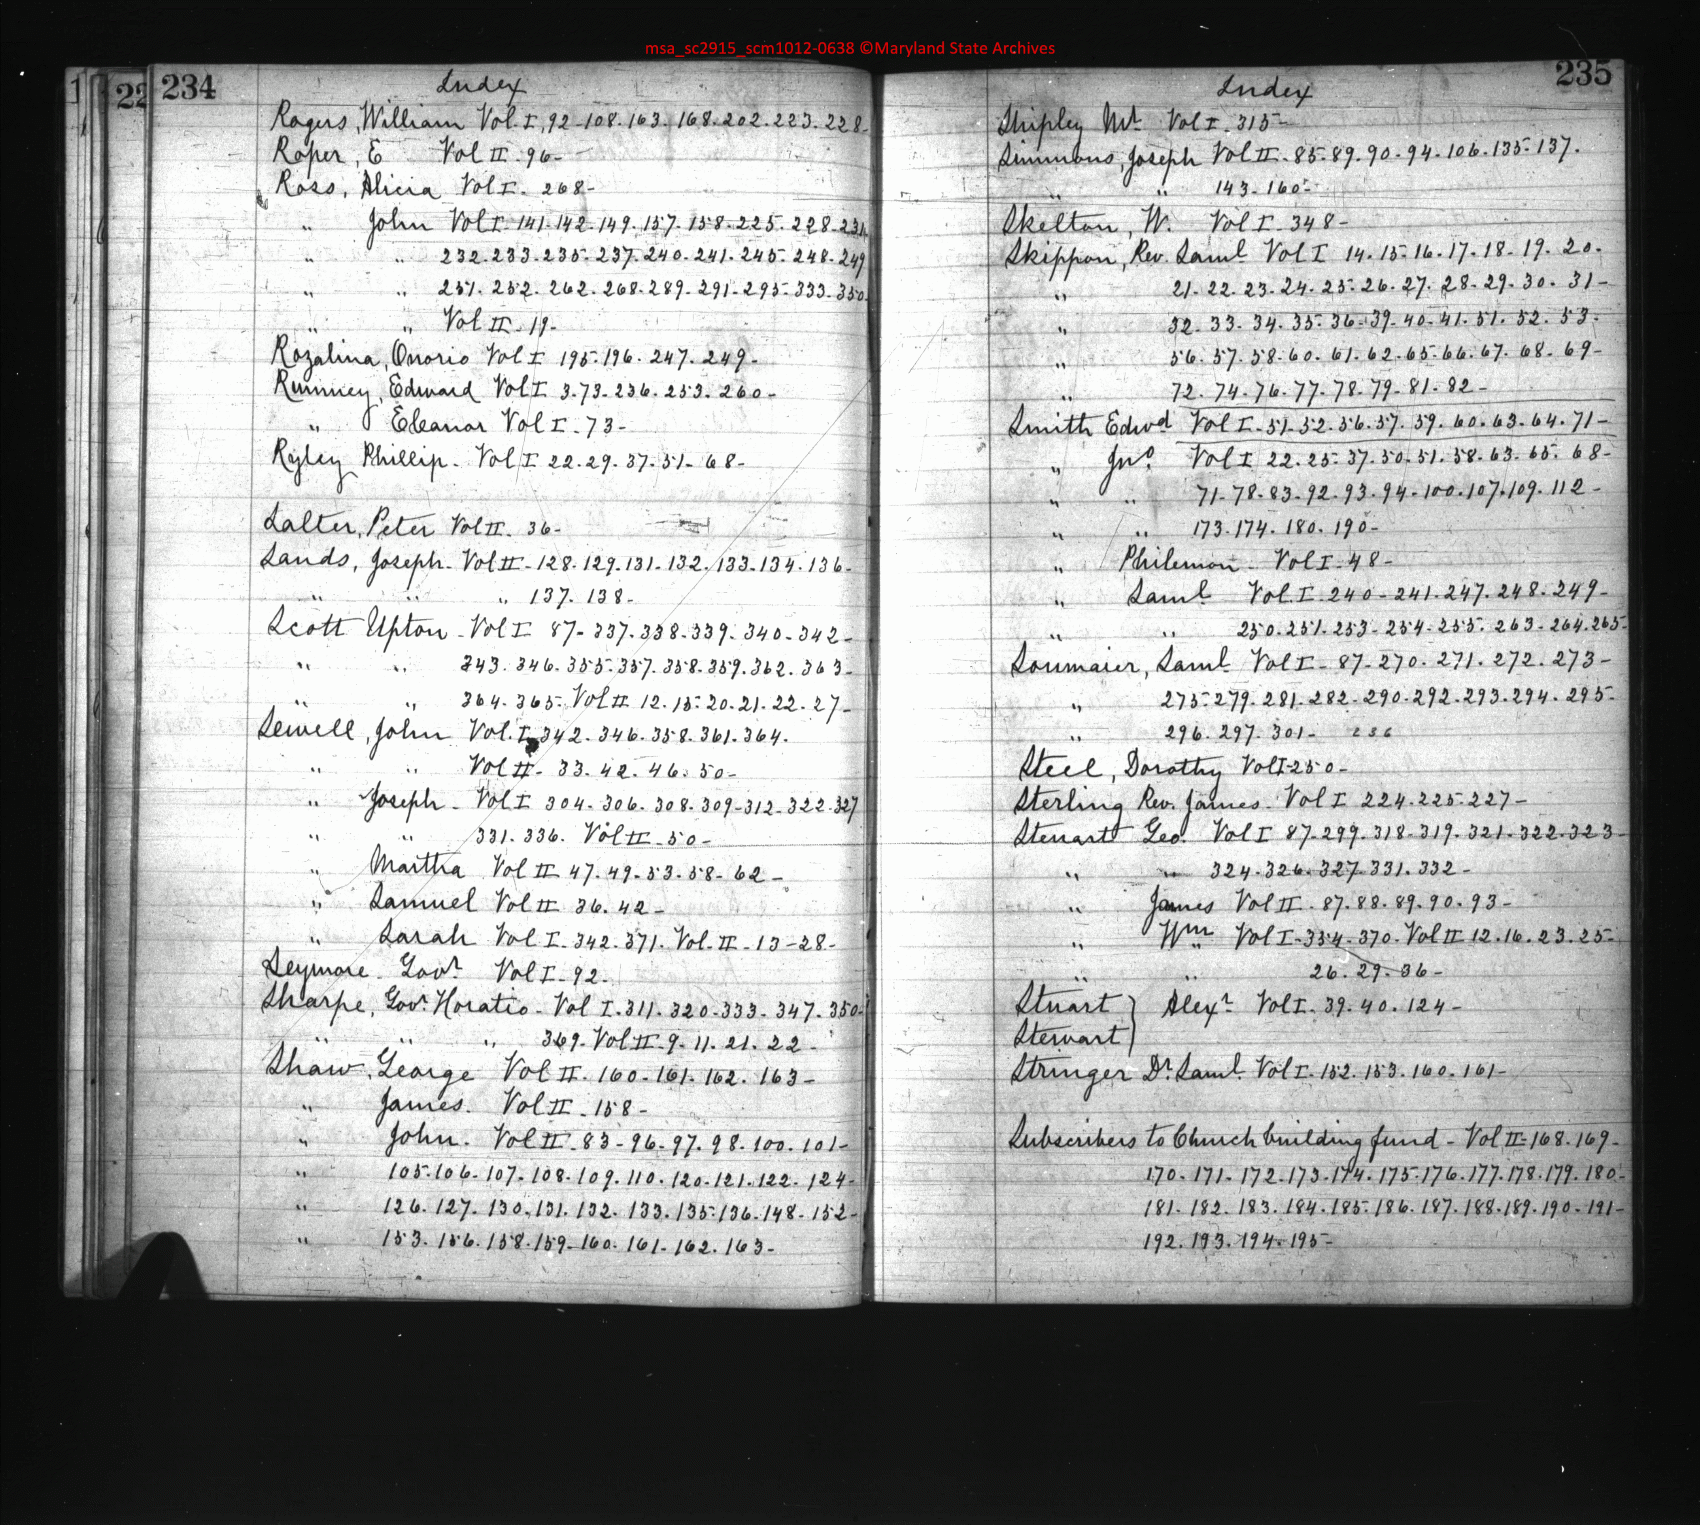 msa_sc2915_scm1012-0638 ©Maryland State Archives
234
Index
Rogers, William Vol. I, 92-108-163-168-202-223-228-
Roper, E Vol II-96-
Ross, Alicia Vol I-268-
" John Vol I-141-142-149-157-158-225-228-231-
" " 232-233-235-237-240-241-245-248-249
" " 251-252-262-268-289-291-295-333-350-
" " Vol II-19-
Rozalina, Onorio Vol I 195-196-247-249-
Rumney, Edward Vol I 3-73-236-253-260-
" Eleanor Vol I-73-
Ryley Phillip- Vol I 22-29-37-51-68-
Salter, Peter Vol II-36-
Sands, Joseph-Vol II-128-129-131-132-133-134-136-
" " " 137-138-
Scott Upton-Vol I 87-337-338-339-340-342-
" " 343-346-355-357-358-359-362-363-
" " 364-365-Vol II 12-15-20-21-22-27-
Sewell, John Vol. I-342-346-358-361-364.
" " Vol II-33-42-46-50-
" Joseph-Vol I 304-306-308-309-312-322-327
" " 331-336. Vol II-50-
" Martha Vol II 47-49-53-58-62-
" Samuel Vol II 36-42-
" Sarah Vol I-342-371. Vol. II-13-28-
Seymore-Govr Vol I-92-
Sharpe, Govr Horatio-Vol I-311-320-333-347-350-
" " " 369-Vol II-9-11-21-22-
Shaw, George Vol II-160-161-162-163-
" James. Vol II-158-
" John. Vol II-83-96-97-98-100-101-
" 105-106-107-108-109-110-120-121-122-124-
" 126-127-130-131-132-133-135-136-148-152-
" 153-156-158-159-160-161-162-163-
235
Index
Shipley Mr. Vol I-315-
Simmons, Joseph Vol II-85-89-90-94-106-135-137.
" " 143-160-
Skelton, W. Vol I-348-
Skippon, Rev. Saml Vol I 14-15-16-17-18-19-20-
" 21-22-23-24-25-26-27-28-29-30-31-
" 32-33-34-35-36-39-40-41-51-52-53-
" 56-57-58-60-61-62-65-66-67-68-69-
" 72-74-76-77-78-79-81-82-
Smith Edwd Vol I-51-52-56-57-59-60-63-64-71-
" Jno. Vol I 22-25-37-50-51-58-63-65-68-
" " 71-78-83-92-93-94-100-107-109-112-
" " 173-174-180-190-
" Philemon-Vol I-48-
" Saml Vol. I-240-241-247-248-249-
" " 250-251-253-254-255-263-264-265-
Soumaier, Saml Vol I-87-270-271-272-273-
" 275-279-281-282-290-292-293-294-295-
" 296-297-301- 286
Steel, Dorothy Vol I-250-
Sterling Rev. James-Vol I 224-225-227-
Steuart Geo. Vol I 87-299-318-319-321-322-323-
" " 324-326-327-331-332-
" James Vol II-87-88-89-90-93-
" Wm Vol I-354-370-Vol II 12-16-23-25-
" " 26-29-36-
Stuart } Alexr Vol I-39-40-124-
Stewart }
Stringer Dr. Saml. Vol I-152-153-160-161-
Subscribers to Church building fund-Vol II-168-169-
170-171-172-173-174-175-176-177-178-179-180-
181-182-183-184-185-186-187-188-189-190-191-
192-193-194-195-